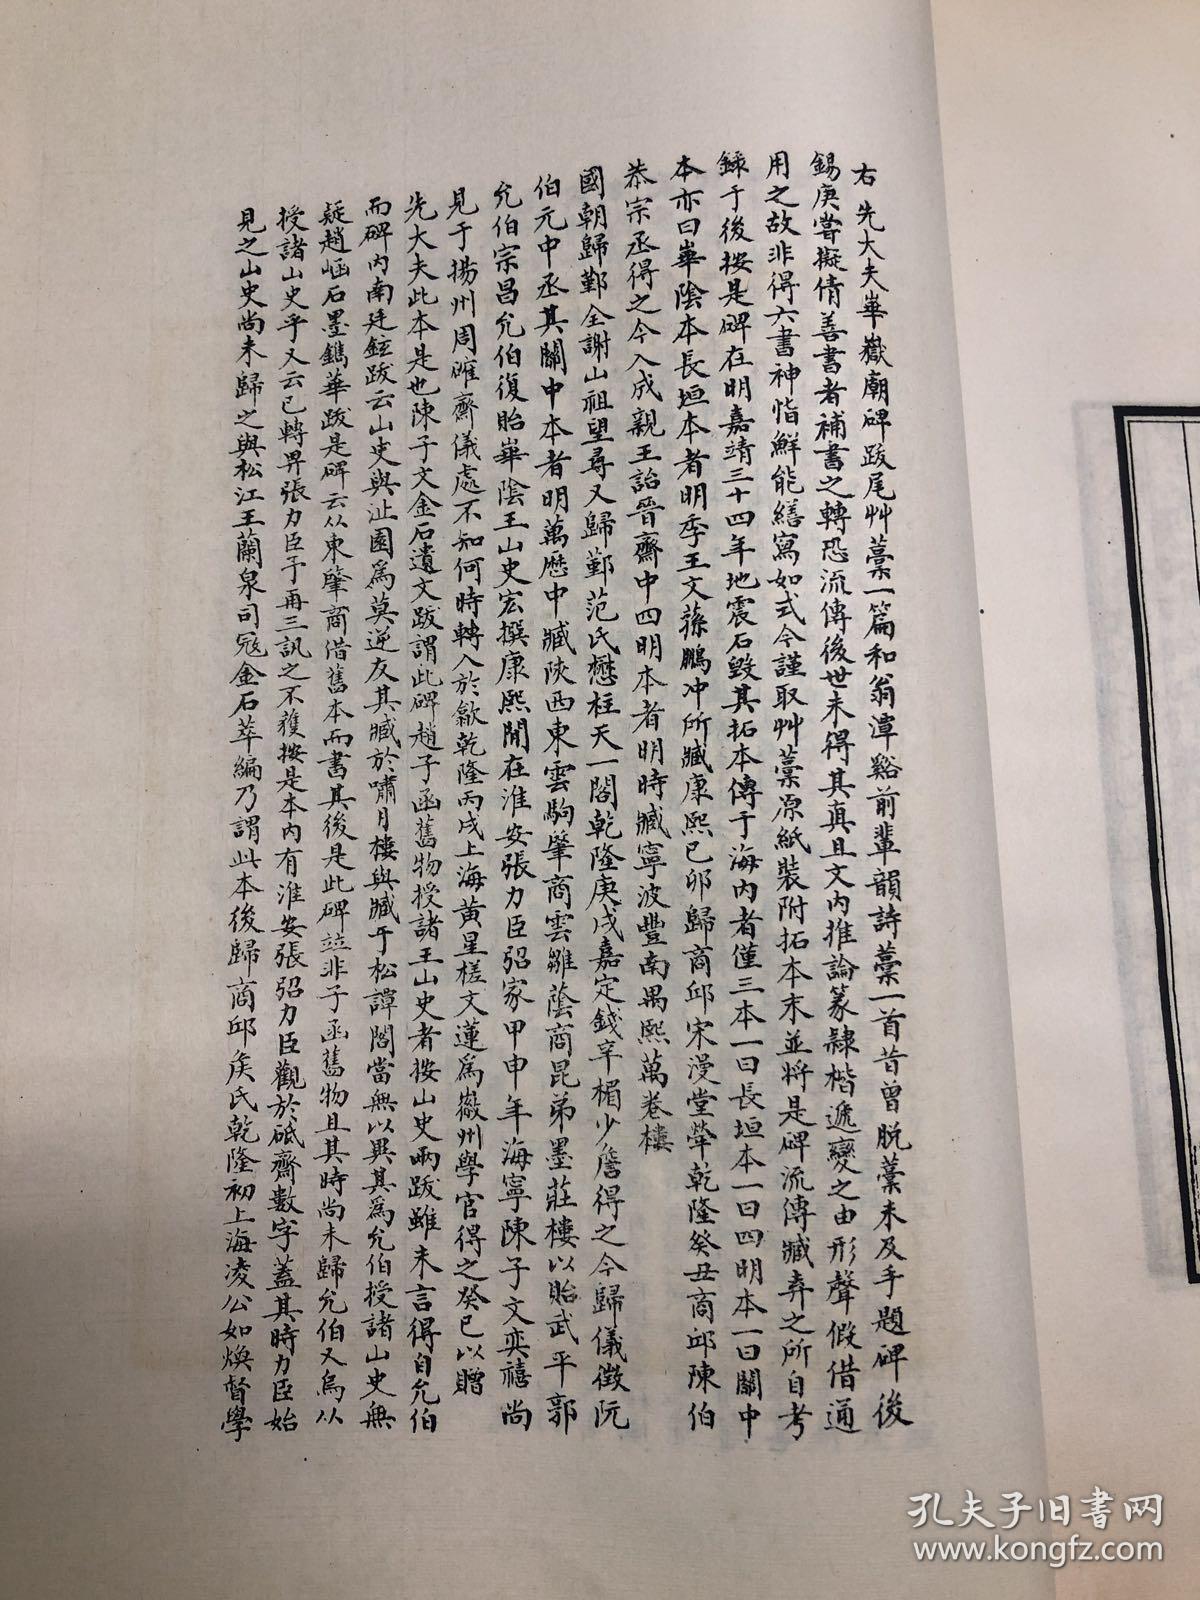 右先大夫華嶽廟碑跋尾艸藁一篇和翁潭谿前輩韻詩藁一首昔曾脫藁未及手題碑後
錫庚嘗擬倩善書者補書之轉恐流傳後世未得其真且文內推論篆隸楷遞變之由形聲假借通
用之故非得六書神恉鮮能繕寫如式今謹取艸藁原紙裝附拓本末並將是碑流傳臧弆之所自考
錄于後按是碑在明嘉靖三十四年地震石毀其拓本傳于海內者僅三本一曰長垣本一曰四明本一曰關中
本亦曰華陰本長垣本者明季王文蓀鵬沖所臧康熙己卯歸商邱宋漫堂犖乾隆癸丑商邱陳伯
恭宗丞得之今入成親王詒晉齋中四明本者明時臧寧波豐南禺熙萬卷樓
國朝歸鄞全謝山祖望尋又歸鄞范氏懋柱天一閣乾隆庚戌嘉定錢辛楣少詹得之今歸儀徵阮
伯元中丞其關中本者明萬歷中臧陝西東雲駒肇商雲雛蔭商昆弟墨莊樓以貽武平郭
允伯宗昌允伯復貽華陰王山史宏撰康熙閒在淮安張力臣弨家甲申年海寧陳子文奕禧尚
見于揚州周確齋儀處不知何時轉入於歙乾隆丙戌上海黃星槎文蓮為徽州學官得之癸巳以贈
先大夫此本是也陳子文金石遺文跋謂此碑趙子函舊物授諸王山史者按山史兩跋雖未言得自允伯
而碑內南廷鉉跋云山史與沚園為莫逆友其臧於嘯月樓與臧于松譚閣當無以異其為允伯授諸山史無
疑趙崡石墨鐫華跋是碑云从東肇商借舊本而書其後是此碑竝非子函舊物且其時尚未歸允伯又烏以
授諸山史乎又云已轉畀張力臣于再三訊之不獲按是本內有淮安張弨力臣觀於砥齋數字蓋其時力臣始
見之山史尚未歸之與松江王蘭泉司寇金石萃編乃謂此本後歸商邱矦氏乾隆初上海凌公如煥督學
孔夫子旧书网
www.kongfz.com